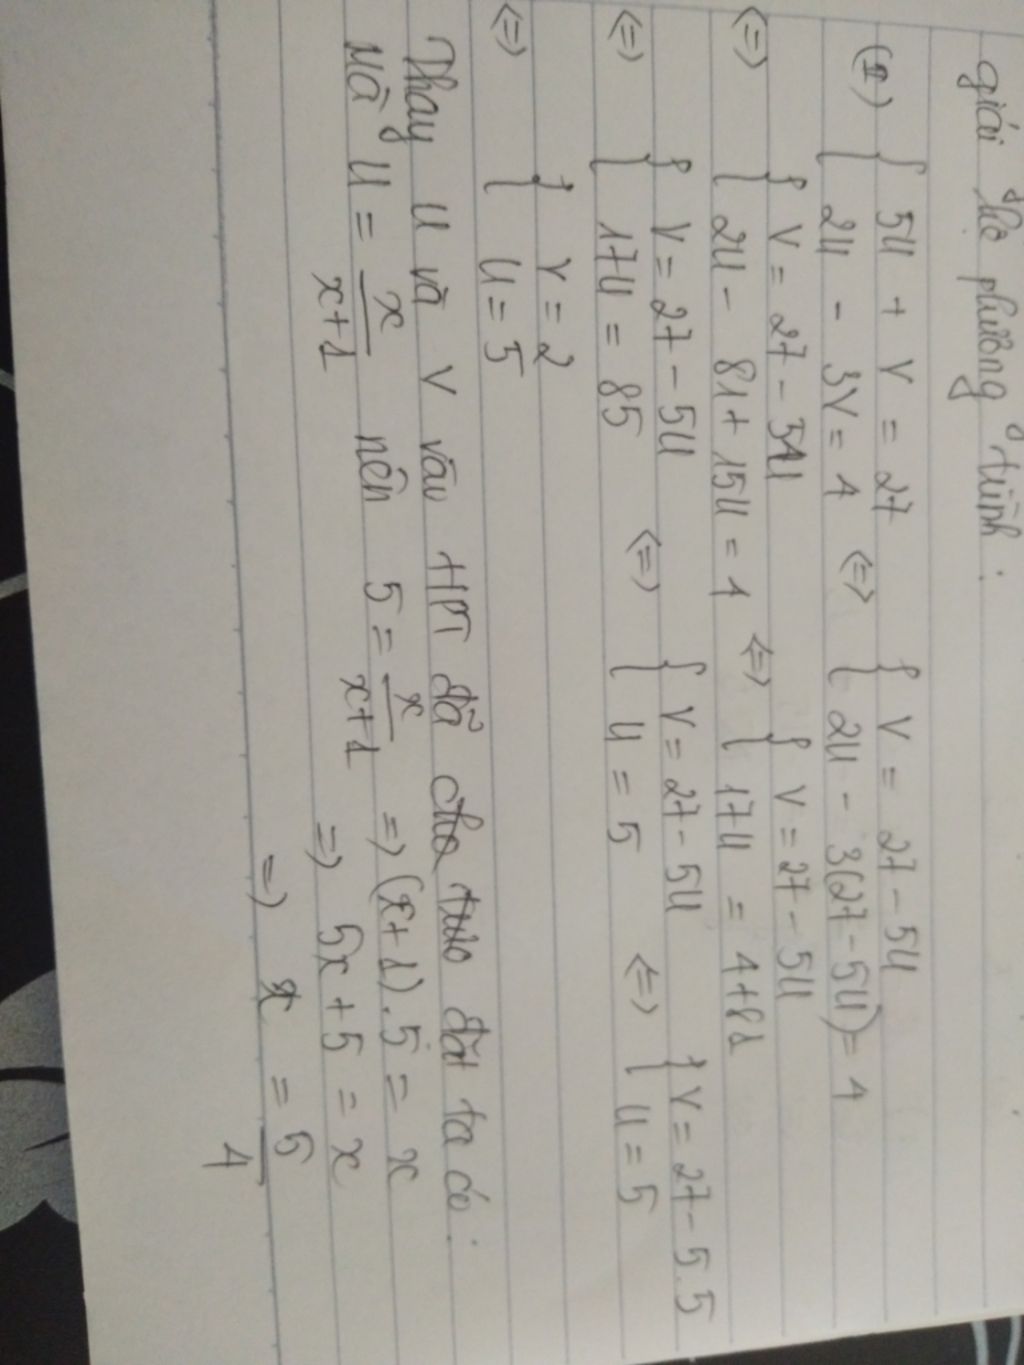 giải hệ phương trình:
(I) { 5u + v = 27
2u - 3v = 4 <=> { v = 27 - 5u
2u - 3(27 - 5u) = 4
<=> { v = 27 - 5u
2u - 81 + 15u = 4 <=> { v = 27 - 5u
17u = 4 + 81
<=> { v = 27 - 5u
17u = 85 <=> { v = 27 - 5u
u = 5 <=> { v = 27 - 5.5
u = 5
<=> { v = 2
u = 5
Thay u và v vào HPT đã cho đặt ta có:
Mà u = x/(x+1) nên 5 = x/(x+1) => (x+1).5 = x
=> 5x + 5 = x
=> x = 5/4